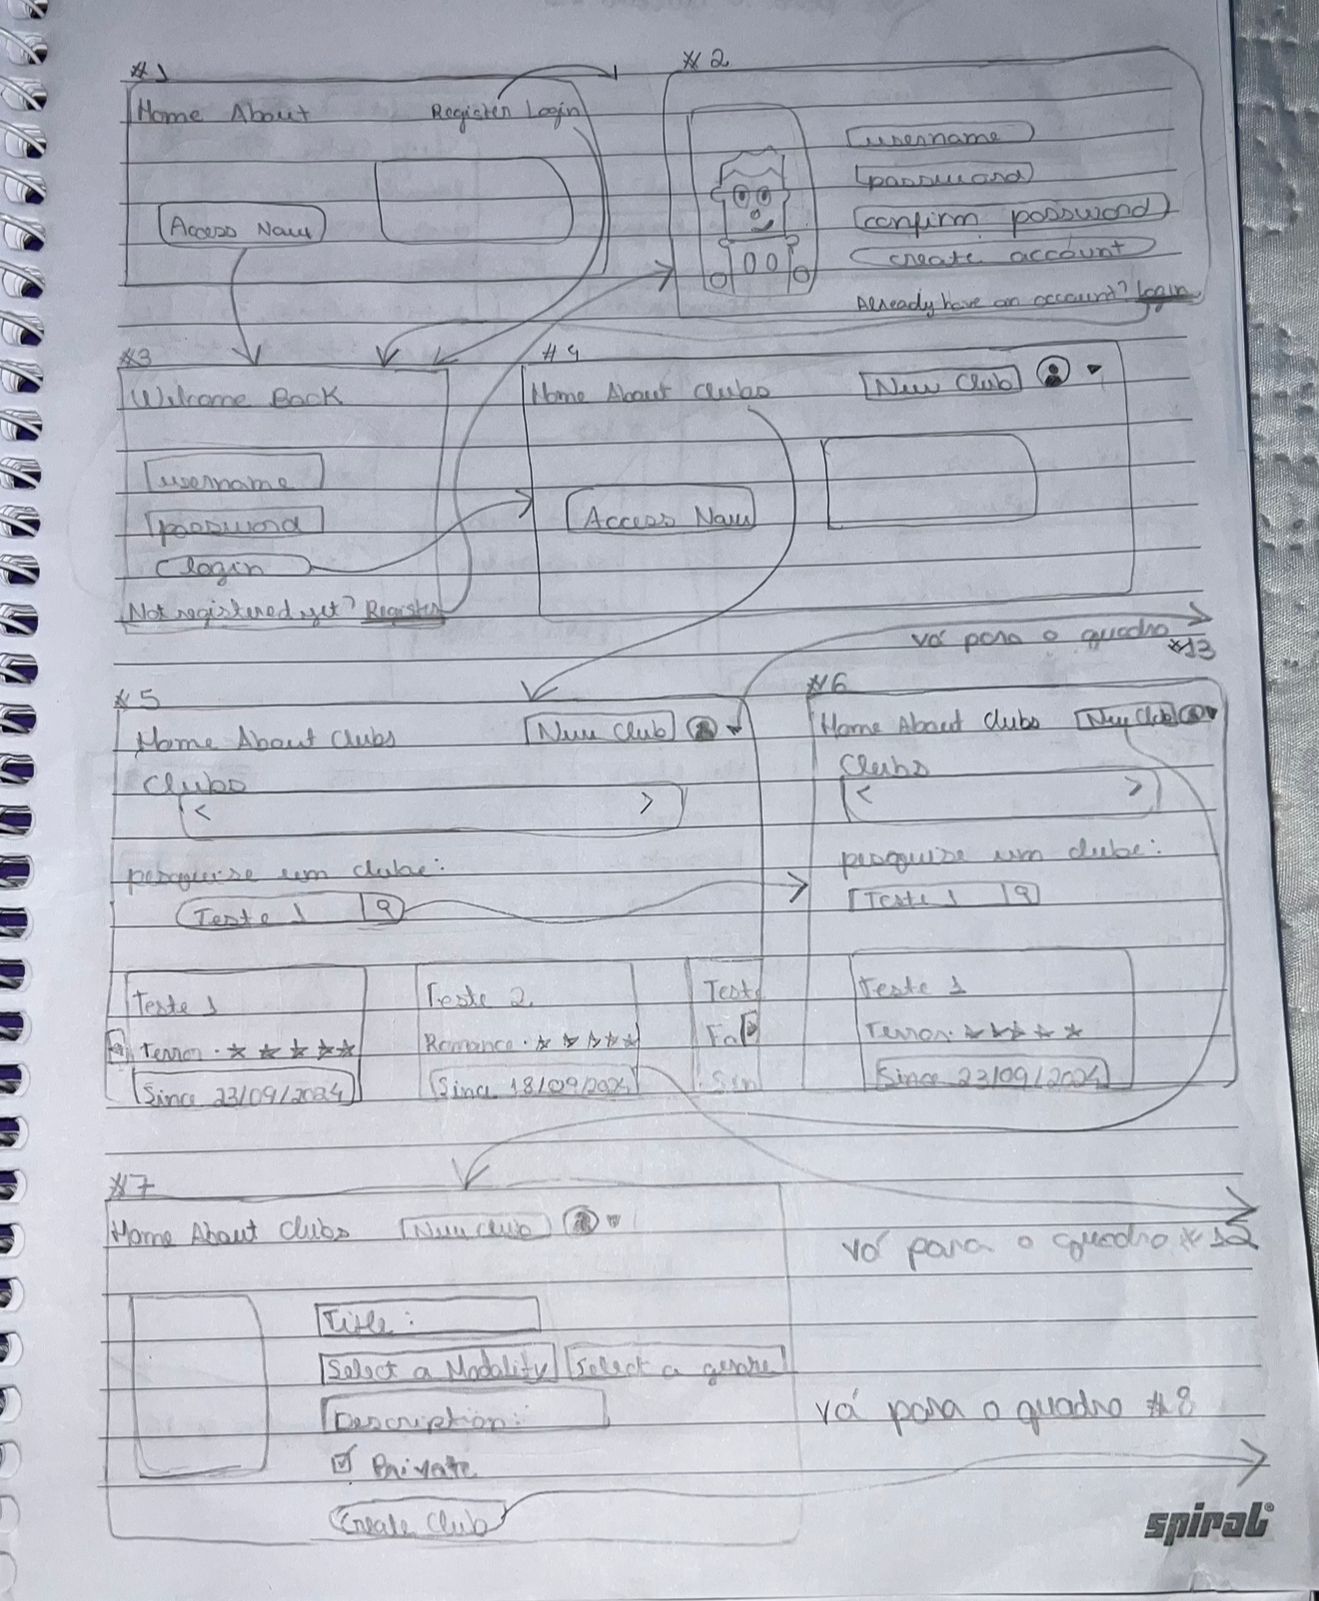 #1
Home About Register Login
Access Now
#2
username
password
confirm password
create account
Already have an account? Login
#3
Welcome Back
username
password
login
Not registered yet? Register
#4
Home About Clubs New Club
Access Now
vá para o quadro
#13
#5
Home About Clubs New Club
Clubs
< >
pesquise um clube:
Teste 1
Teste 1
Terror. ★★★★★
Since 23/09/2024
Teste 2
Romance. ★★★★★
Since 18/09/2024
Test
Fa
Sin
#6
Home About Clubs New Club
Clubs
< >
pesquise um clube:
Teste 1
Teste 1
Terror. ★★★★★
Since 23/09/2024
#7
Home About Clubs New Club
vá para o quadro #12
Title:
Select a Modality Select a genre
Description:
Private
Create Club
vá para o quadro #8
spiral®